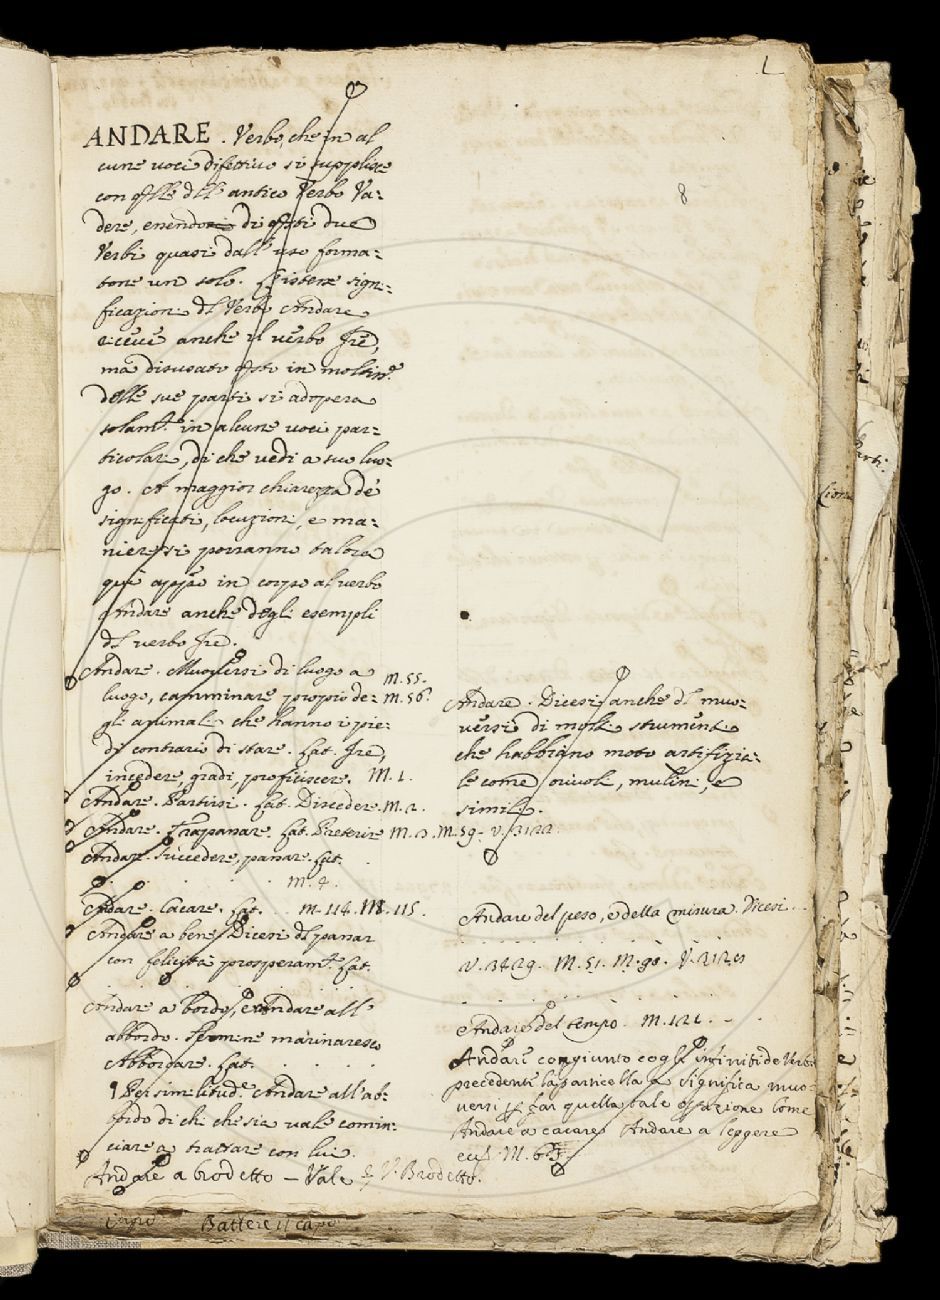 1
8
ANDARE. Verbo, che in al
cune voci difettivo si supplisce
con qlle dll' antico Verbo Va=
dere, essendo di qsti due
Verbi quasi dall' uso forma=
tone un solo. L'istesse signi=
ficazioni dl Verbo Andare
riceve anche il verbo Ire,
ma disusato qsto in moltiss.e
delle sue parti si adopera
solam.te in alcune voci par=
ticolari, di che vedi a suo luo=
go. A maggior chiarezza de
significati, locuzioni, e ma=
niere si porranno talora
qui appso in corpo al verbo
Andare anche degli esempli
dl verbo Ire.
Andare. Muoversi di luogo a M.55.
luogo, camminare proprio de= M.56.
gli animali che hanno i pie=
di contrario di stare. Lat. Ire,
incedere, gradi, proficiscere. M.1.
Andare. Partirsi. Lat. Discedere. M.2.
Andare. Trapassare. Lat. Preterire M.3. M.59. V.3122.
Andare. Succedere, passare. Lat.
M.4.
Andare. Cacare. Lat. . . M.114. M.115.
Andare a bene. Dicesi dl passar
con felicità prosperam.te Lat.
Andare a bordo, e Andare all'
abbordo. Termine marinaresco
Abbordare. Lat.
¶ Per similitud.e Andare all' ab=
bordo di chi che sia vale comin=
ciare a trattare con lui.
Andare a brodetto — Vale V. Brodetto.
Andare. Dicesi anche dl muo=
versi di molti strumenti
che habbiano moto artifizia=
le come orivoli, mulini, e
simili.
Andare del peso, e della misura. Dicesi . .
V.3429. M.51. M.98. V.2120
Andare del tempo. M.121. . .
Andare congiunto cogli infiniti de Verbi
precedenti la particella a significa muo=
versi p far quella tale operazione Come
Andare a cacare Andare a leggere
ecc. M.63.
capo Battere il capo